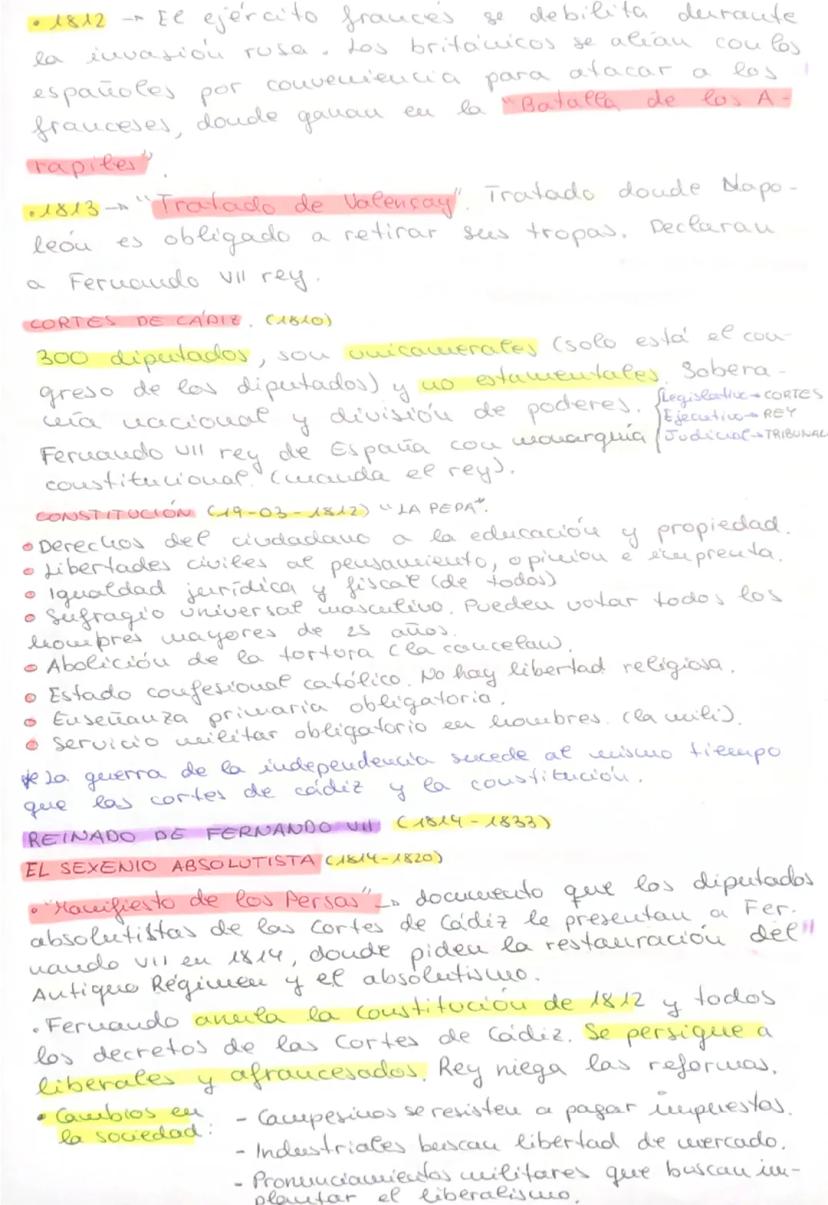 • 1812 → El ejército francés se debilita durante
la invasión rusa. Los británicos se alían con los
españoles por conveniencia para atacar a los
franceses, donde ganan en la "Batalla de los A-
rapiles".
• 1813 → "Tratado de Valençay". Tratado donde Napo-
león es obligado a retirar sus tropas. Declaran
a Fernando VII rey.
CORTES DE CÁDIZ. (1810)
300 diputados, son unicamerales (solo está el con-
greso de los diputados) y no estamentales. Sobera-
nía nacional y división de poderes. Legislativo → CORTES
Ejecutivo → REY
Judicial → TRIBUNAL
Fernando VII rey de España con monarquía
constitucional. (manda el rey).
CONSTITUCIÓN (19-03-1812) "LA PEPA".
• Derechos del ciudadano a la educación y propiedad.
• Libertades civiles al pensamiento, opinión e imprenta.
• Igualdad jurídica y fiscal (de todos)
• Sufragio universal masculino. Pueden votar todos los
hombres mayores de 25 años.
• Abolición de la tortora (la cancelan).
• Estado confesional católico. No hay libertad religiosa.
• Enseñanza primaria obligatoria.
• Servicio militar obligatorio en hombres. (la mili).
* La guerra de la independencia sucede al mismo tiempo
que las cortes de cádiz y la constitución.
REINADO DE FERNANDO VII (1814-1833)
EL SEXENIO ABSOLUTISTA (1814-1820)
• "Manifiesto de los Persas" → documento que los diputados
absolutistas de las Cortes de Cádiz le presentan a Fer-
nando VII en 1814, donde piden la restauración del
Antiguo Régimen y el absolutismo.
• Fernando anula la Constitución de 1812 y todos
los decretos de las Cortes de Cádiz. Se persigue a
liberales y afrancesados. Rey niega las reformas.
• Cambios en
la sociedad:
- Campesinos se resisten a pagar impuestos.
- Industriales buscan libertad de mercado.
- Pronunciamientos militares que buscan im-
plantar el liberalismo.